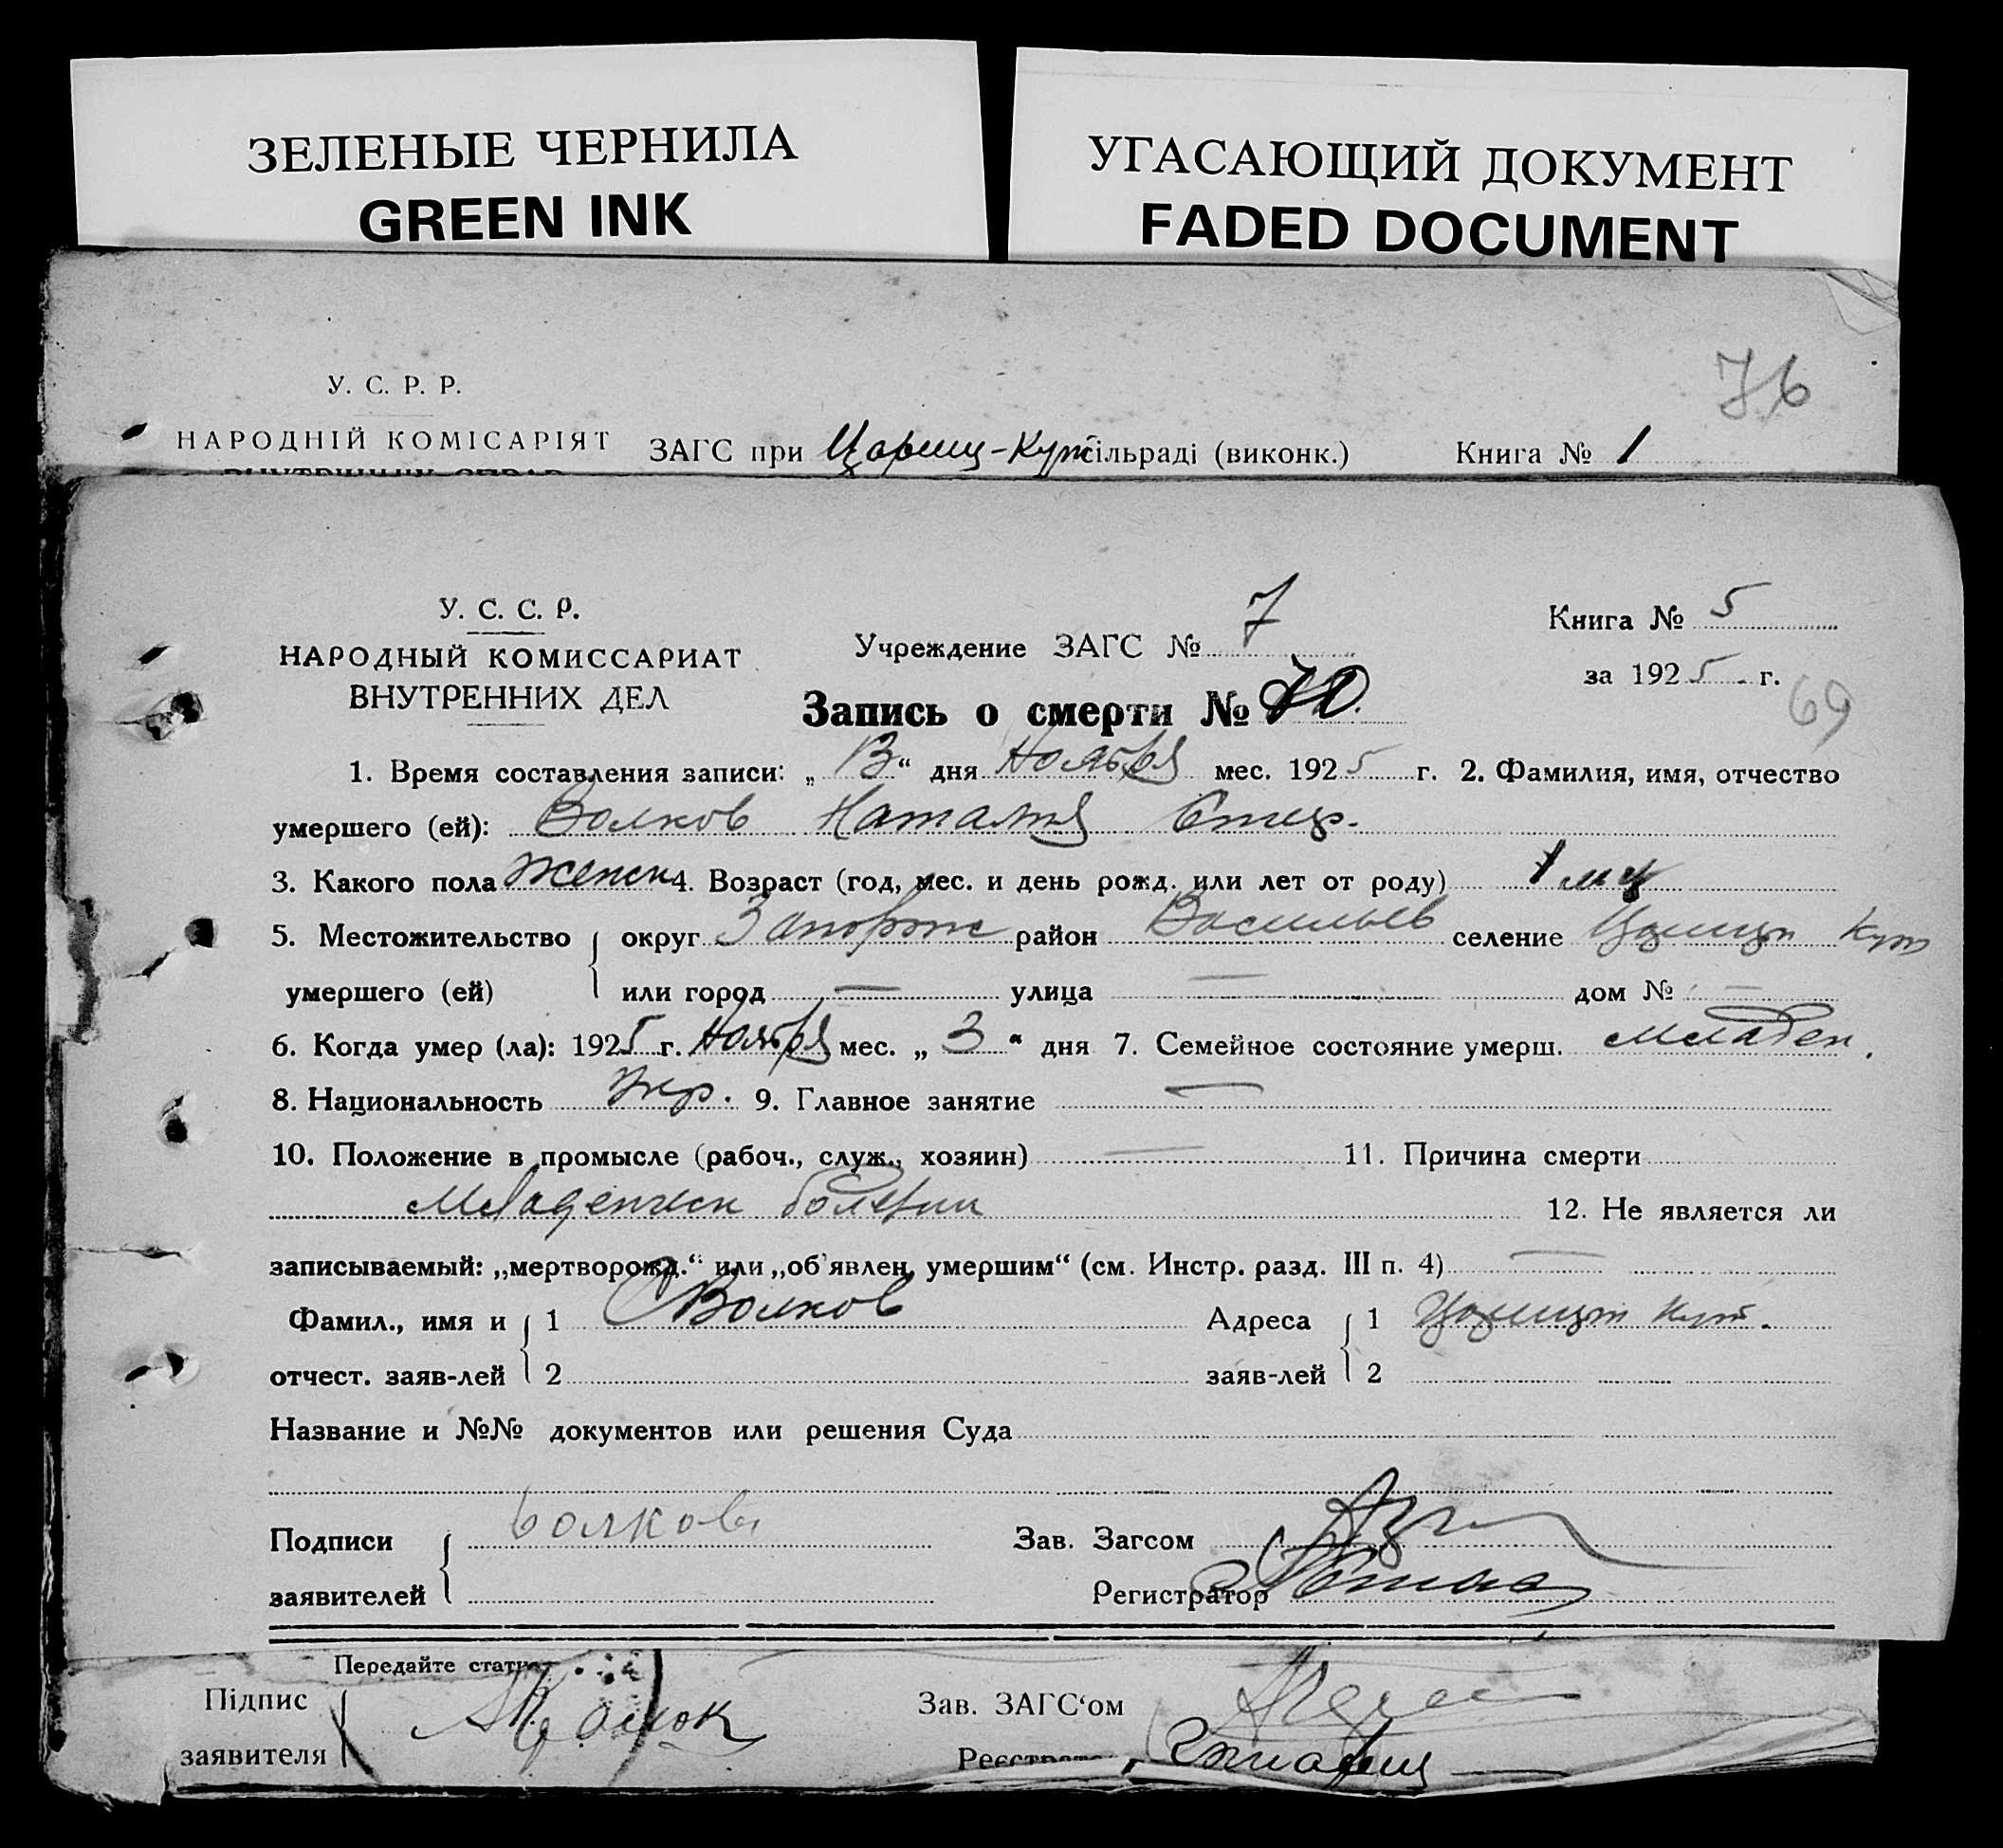 ЗЕЛЕНЫЕ ЧЕРНИЛА
GREEN INK
УГАСАЮЩИЙ ДОКУМЕНТ
FADED DOCUMENT
76
У. С. Р. Р.
НАРОДНІЙ КОМІСАРІЯТ
ВНУТРІШНІХ СПРАВ
ЗАГС при Цариц-Кут сільраді (виконк.) Книга № 1
У. С. С. Р.
НАРОДНЫЙ КОМИССАРИАТ
ВНУТРЕННИХ ДЕЛ
Учреждение ЗАГС № 7
Книга № 5
за 1925 г.
69
Запись о смерти № 70
1. Время составления записи: „ “ дня Ноября мес. 1925 г. 2. Фамилия, имя, отчество
умершего (ей): Волков Наталия
3. Какого пола женск 4. Возраст (год, мес. и день рожд. или лет от роду) 1 мц
5. Местожительство округ Запорож район Васильев селение Царицын Кут
умершего (ей) или город — улица — дом № —
6. Когда умер (ла): 1925 г. Ноября мес. „ 3 “ дня 7. Семейное состояние умерш. младен.
8. Национальность Укр. 9. Главное занятие —
10. Положение в промысле (рабоч., служ., хозяин) — 11. Причина смерти
Младенческ болезни 12. Не является ли
записываемый: „мертворожд.“ или „об'явлен. умершим“ (см. Инстр. разд. III п. 4) —
Фамил., имя и 1 С Волков Адреса 1 Царицын Кут.
отчест. заяв-лей 2 заяв-лей 2
Название и №№ документов или решения Суда
Подписи Волков Зав. Загсом
заявителей Регистратор
Передайте стати
Підпис Зав. ЗАГС‘ом
заявителя Реєстрато